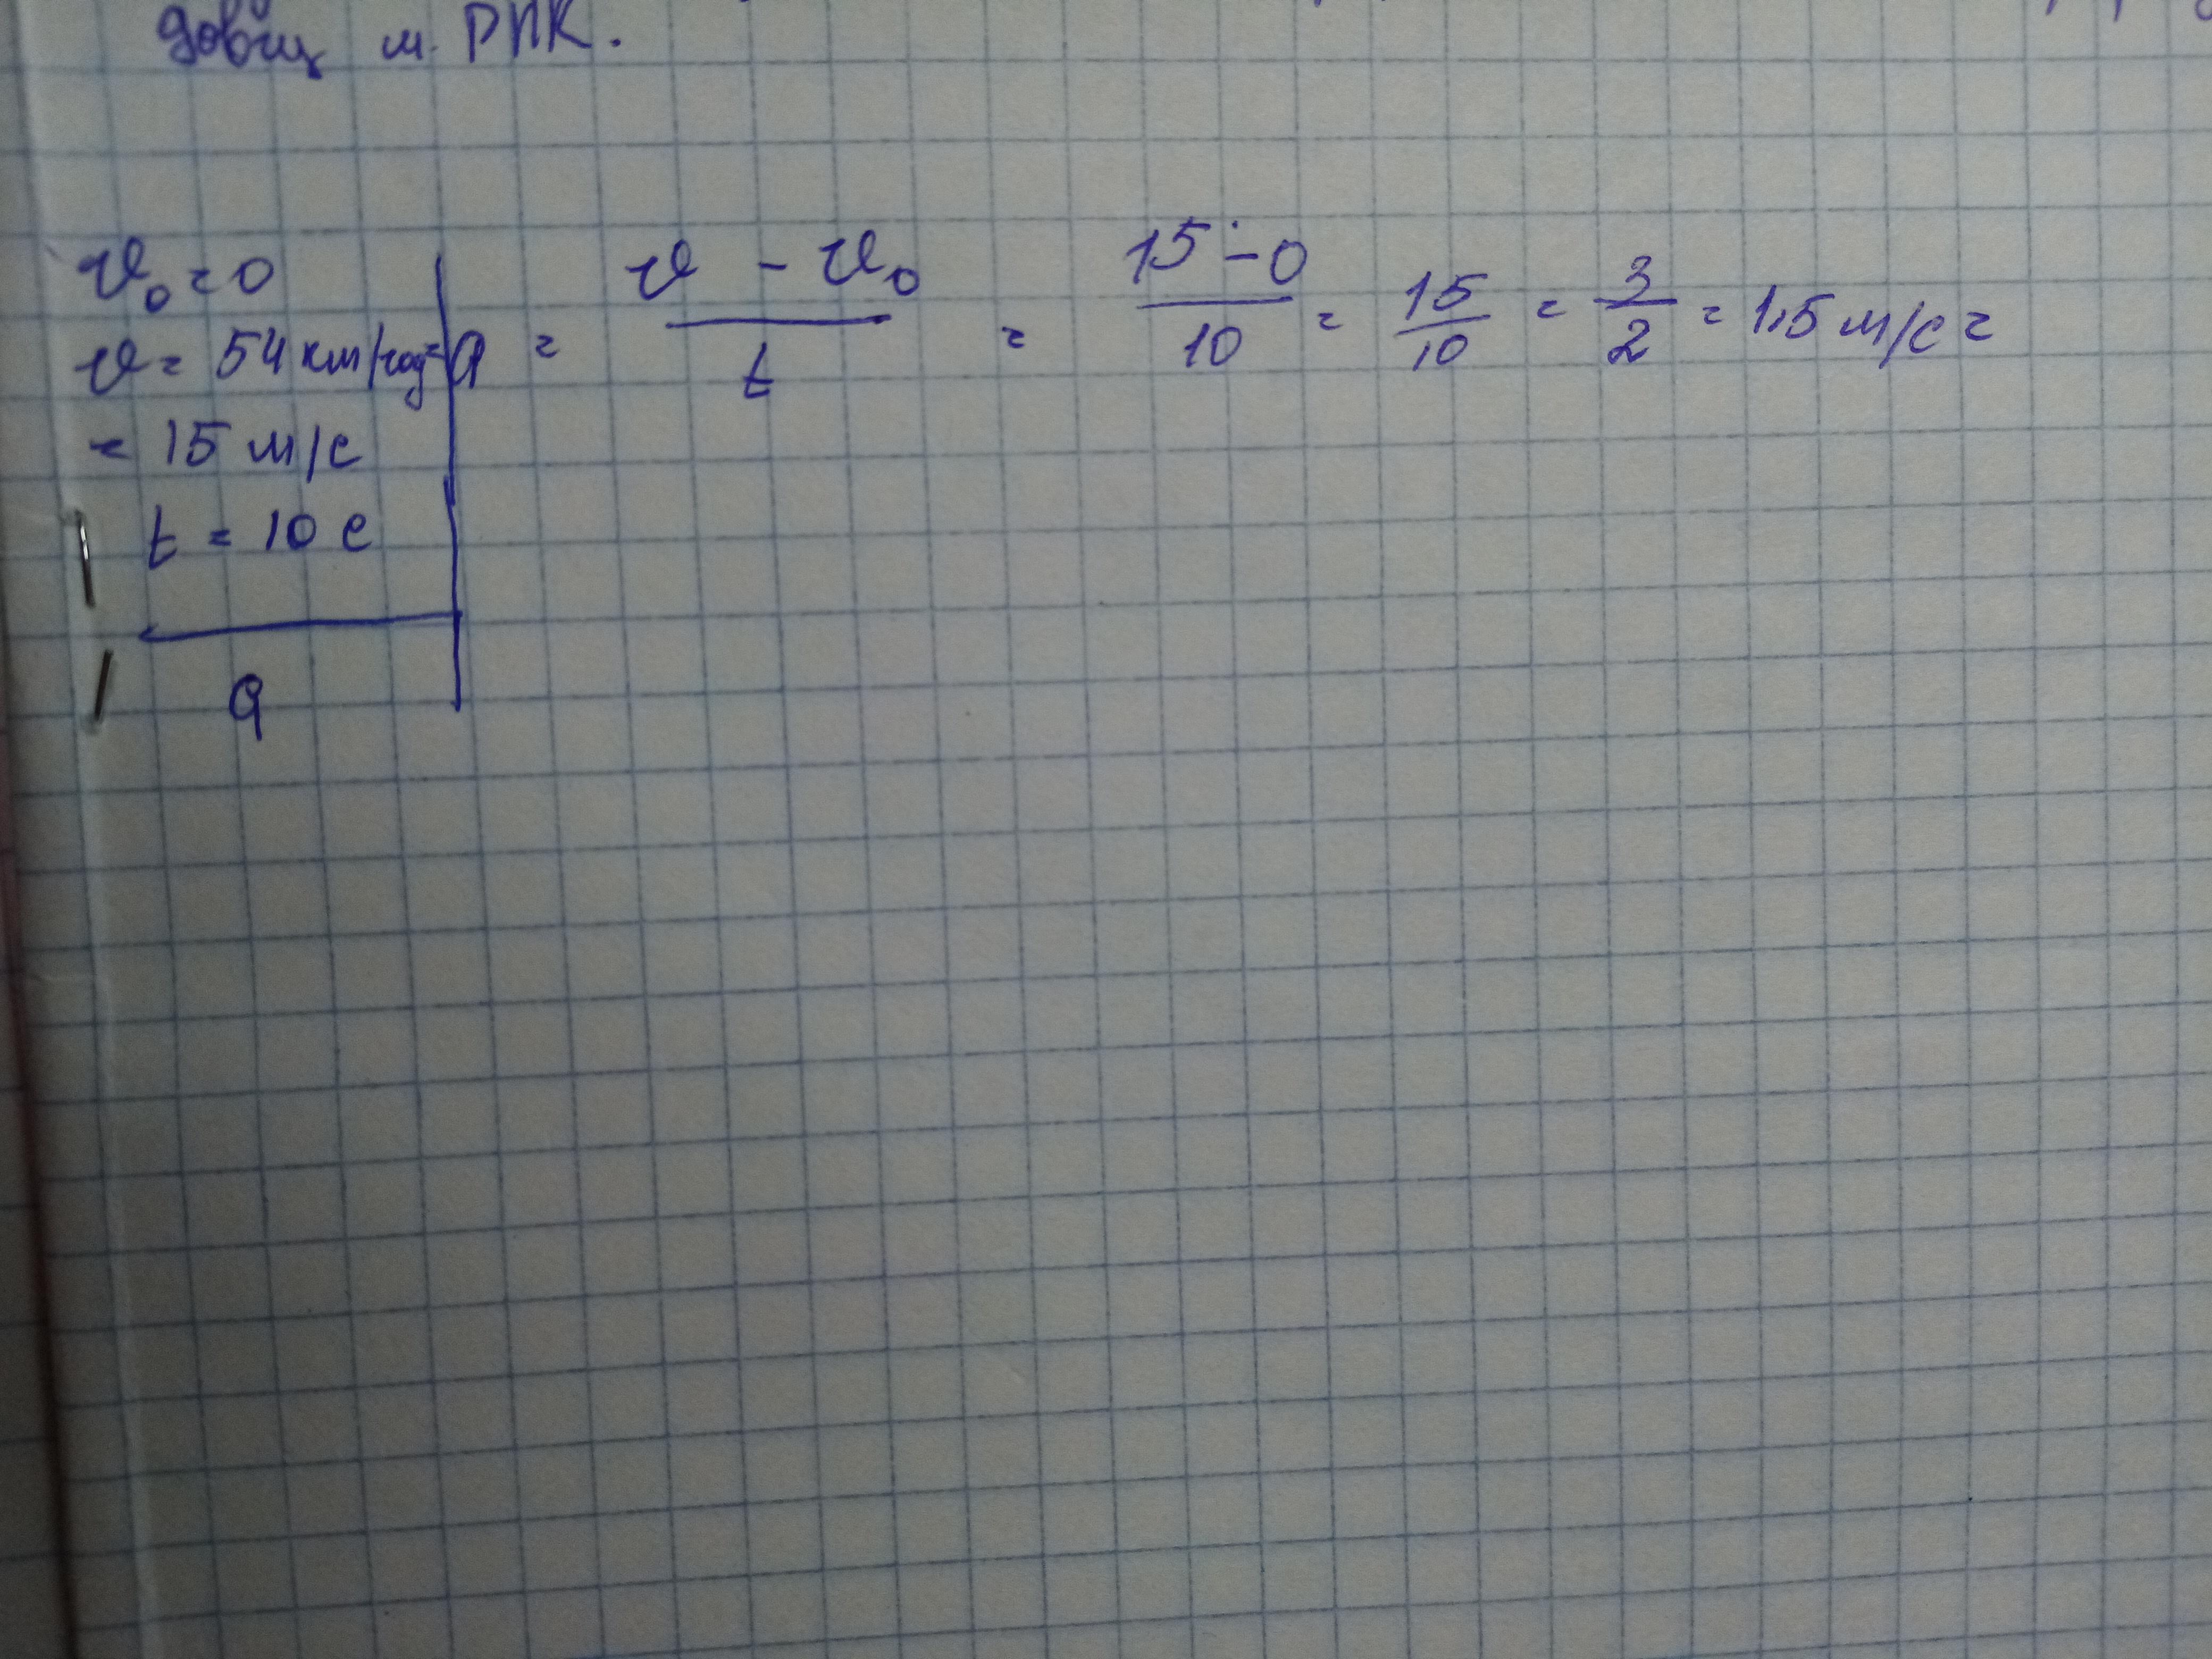 м. РПК.
v₀ = 0
v = 54 км/год =
= 15 м/с
t = 10 с
a
a = (v - v₀)/t = (15 - 0)/10 = 15/10 = 3/2 = 1,5 м/с²